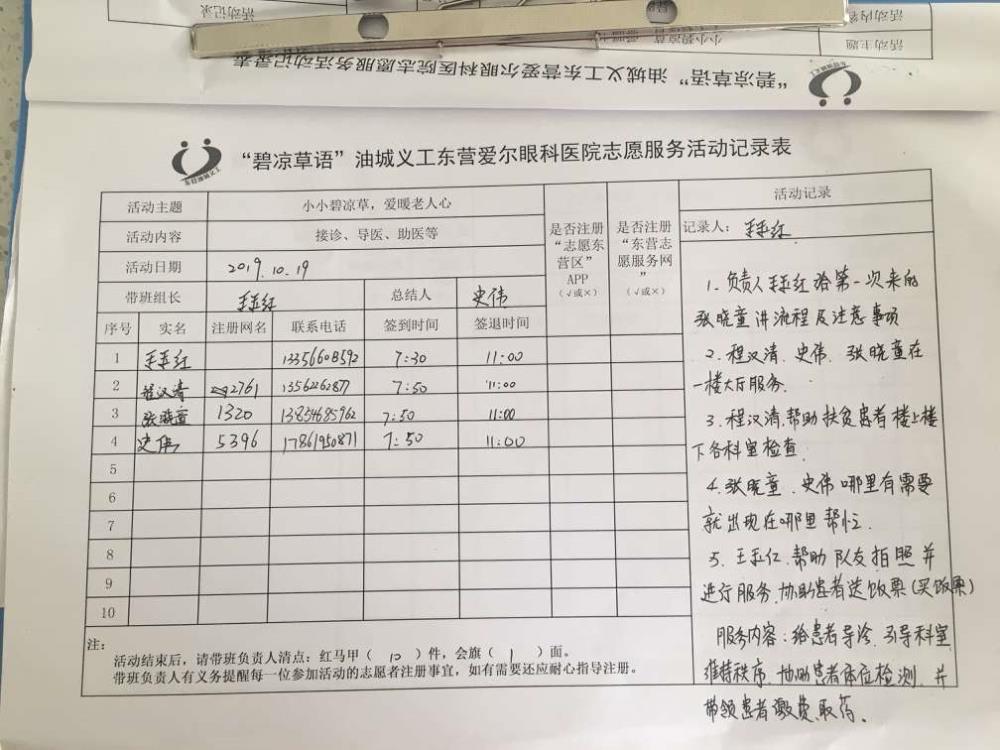 活动记录
活动内容
小小碧凉草
活动主题
“碧凉草语”油城义工东营爱尔眼科医院志愿服务活动记录表
“碧凉草语”油城义工东营爱尔眼科医院志愿服务活动记录表
活动主题 小小碧凉草，爱暖老人心
活动内容 接诊、导医、助医等
活动日期 2019.10.19
带班组长 王玉红 总结人 史伟
是否注册“志愿东营区”APP（√或×）
是否注册“东营志愿服务网”（√或×）
序号 实名 注册网名 联系电话 签到时间 签退时间
1 王玉红 13356608592 7:30 11:00
2 程汉清 2761 1356262877 7:50 11:00
3 张晓童 1320 13854685962 7:50 11:00
4 史伟 5396 17861950871 7:50 11:00
5
6
7
8
9
10
注：
活动结束后，请带班负责人清点：红马甲（ 10 ）件，会旗（ 1 ）面。
带班负责人有义务提醒每一位参加活动的志愿者注册事宜，如有需要还应耐心指导注册。
活动记录
记录人：王玉红
1、负责人王玉红给第一次来的
张晓童讲流程及注意事项
2、程汉清、史伟、张晓童在
一楼大厅服务.
3、程汉清,帮助扶负患者楼上楼
下各科室检查.
4、张晓童、史伟哪里有需要
就出现在哪里帮忙.
5、王玉仁、帮助队友拍照并
进行服务.协助患者送饭票(买饭票)
服务内容：给患者导诊,引导科室
维持秩序,协助患者体位检测,并
带领患者缴费,取药.